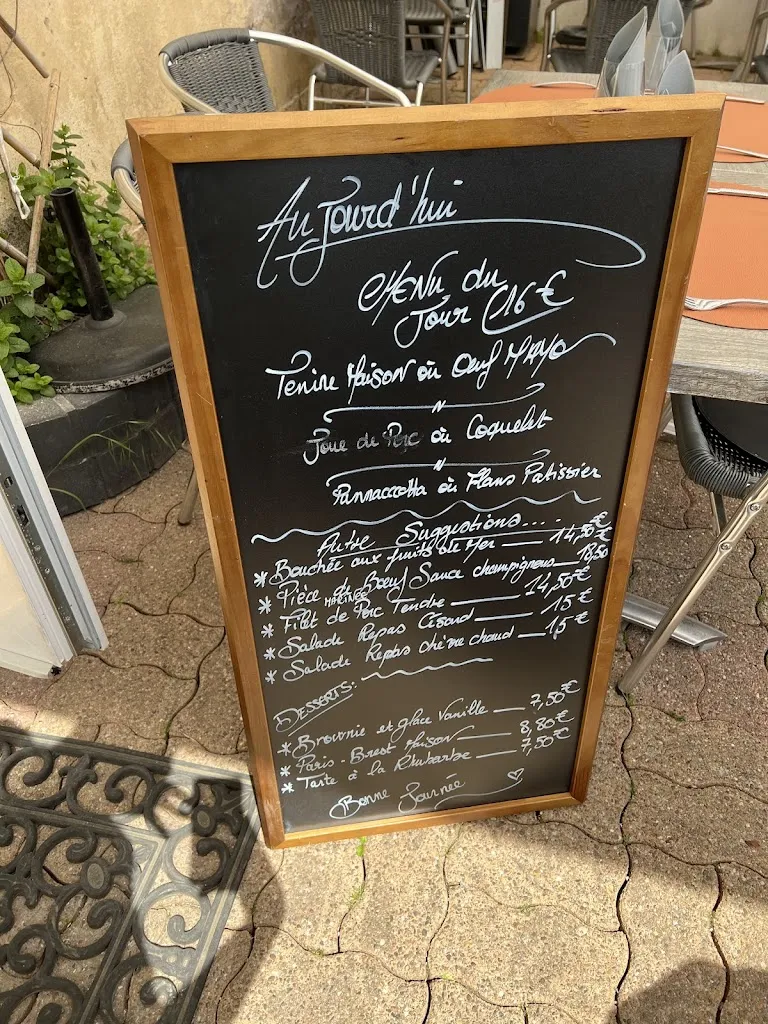 Aujourd'hui
MENU du
Jour (16 €
Terrine Maison ou Oeuf MAYO
Joue de Porc ou Coquelet
Pannaccotta ou Flans Patissier
Autre Suggestions....
* Bouchée aux fruits de Mer — 14,50 €
* Pièce de Boeuf Sauce champignons — 18,50 €
* Filet de Porc MARINÉS Tendre — 14,50 €
* Salade Repas César — 15 €
* Salade Repas chèvre chaud — 15 €
DESSERTS:
* Brownie et glace Vanille — 7,50 €
* Paris-Brest Maison — 8,80 €
* Tarte à la Rhubarbe — 7,50 €
Bonne Journée ♡